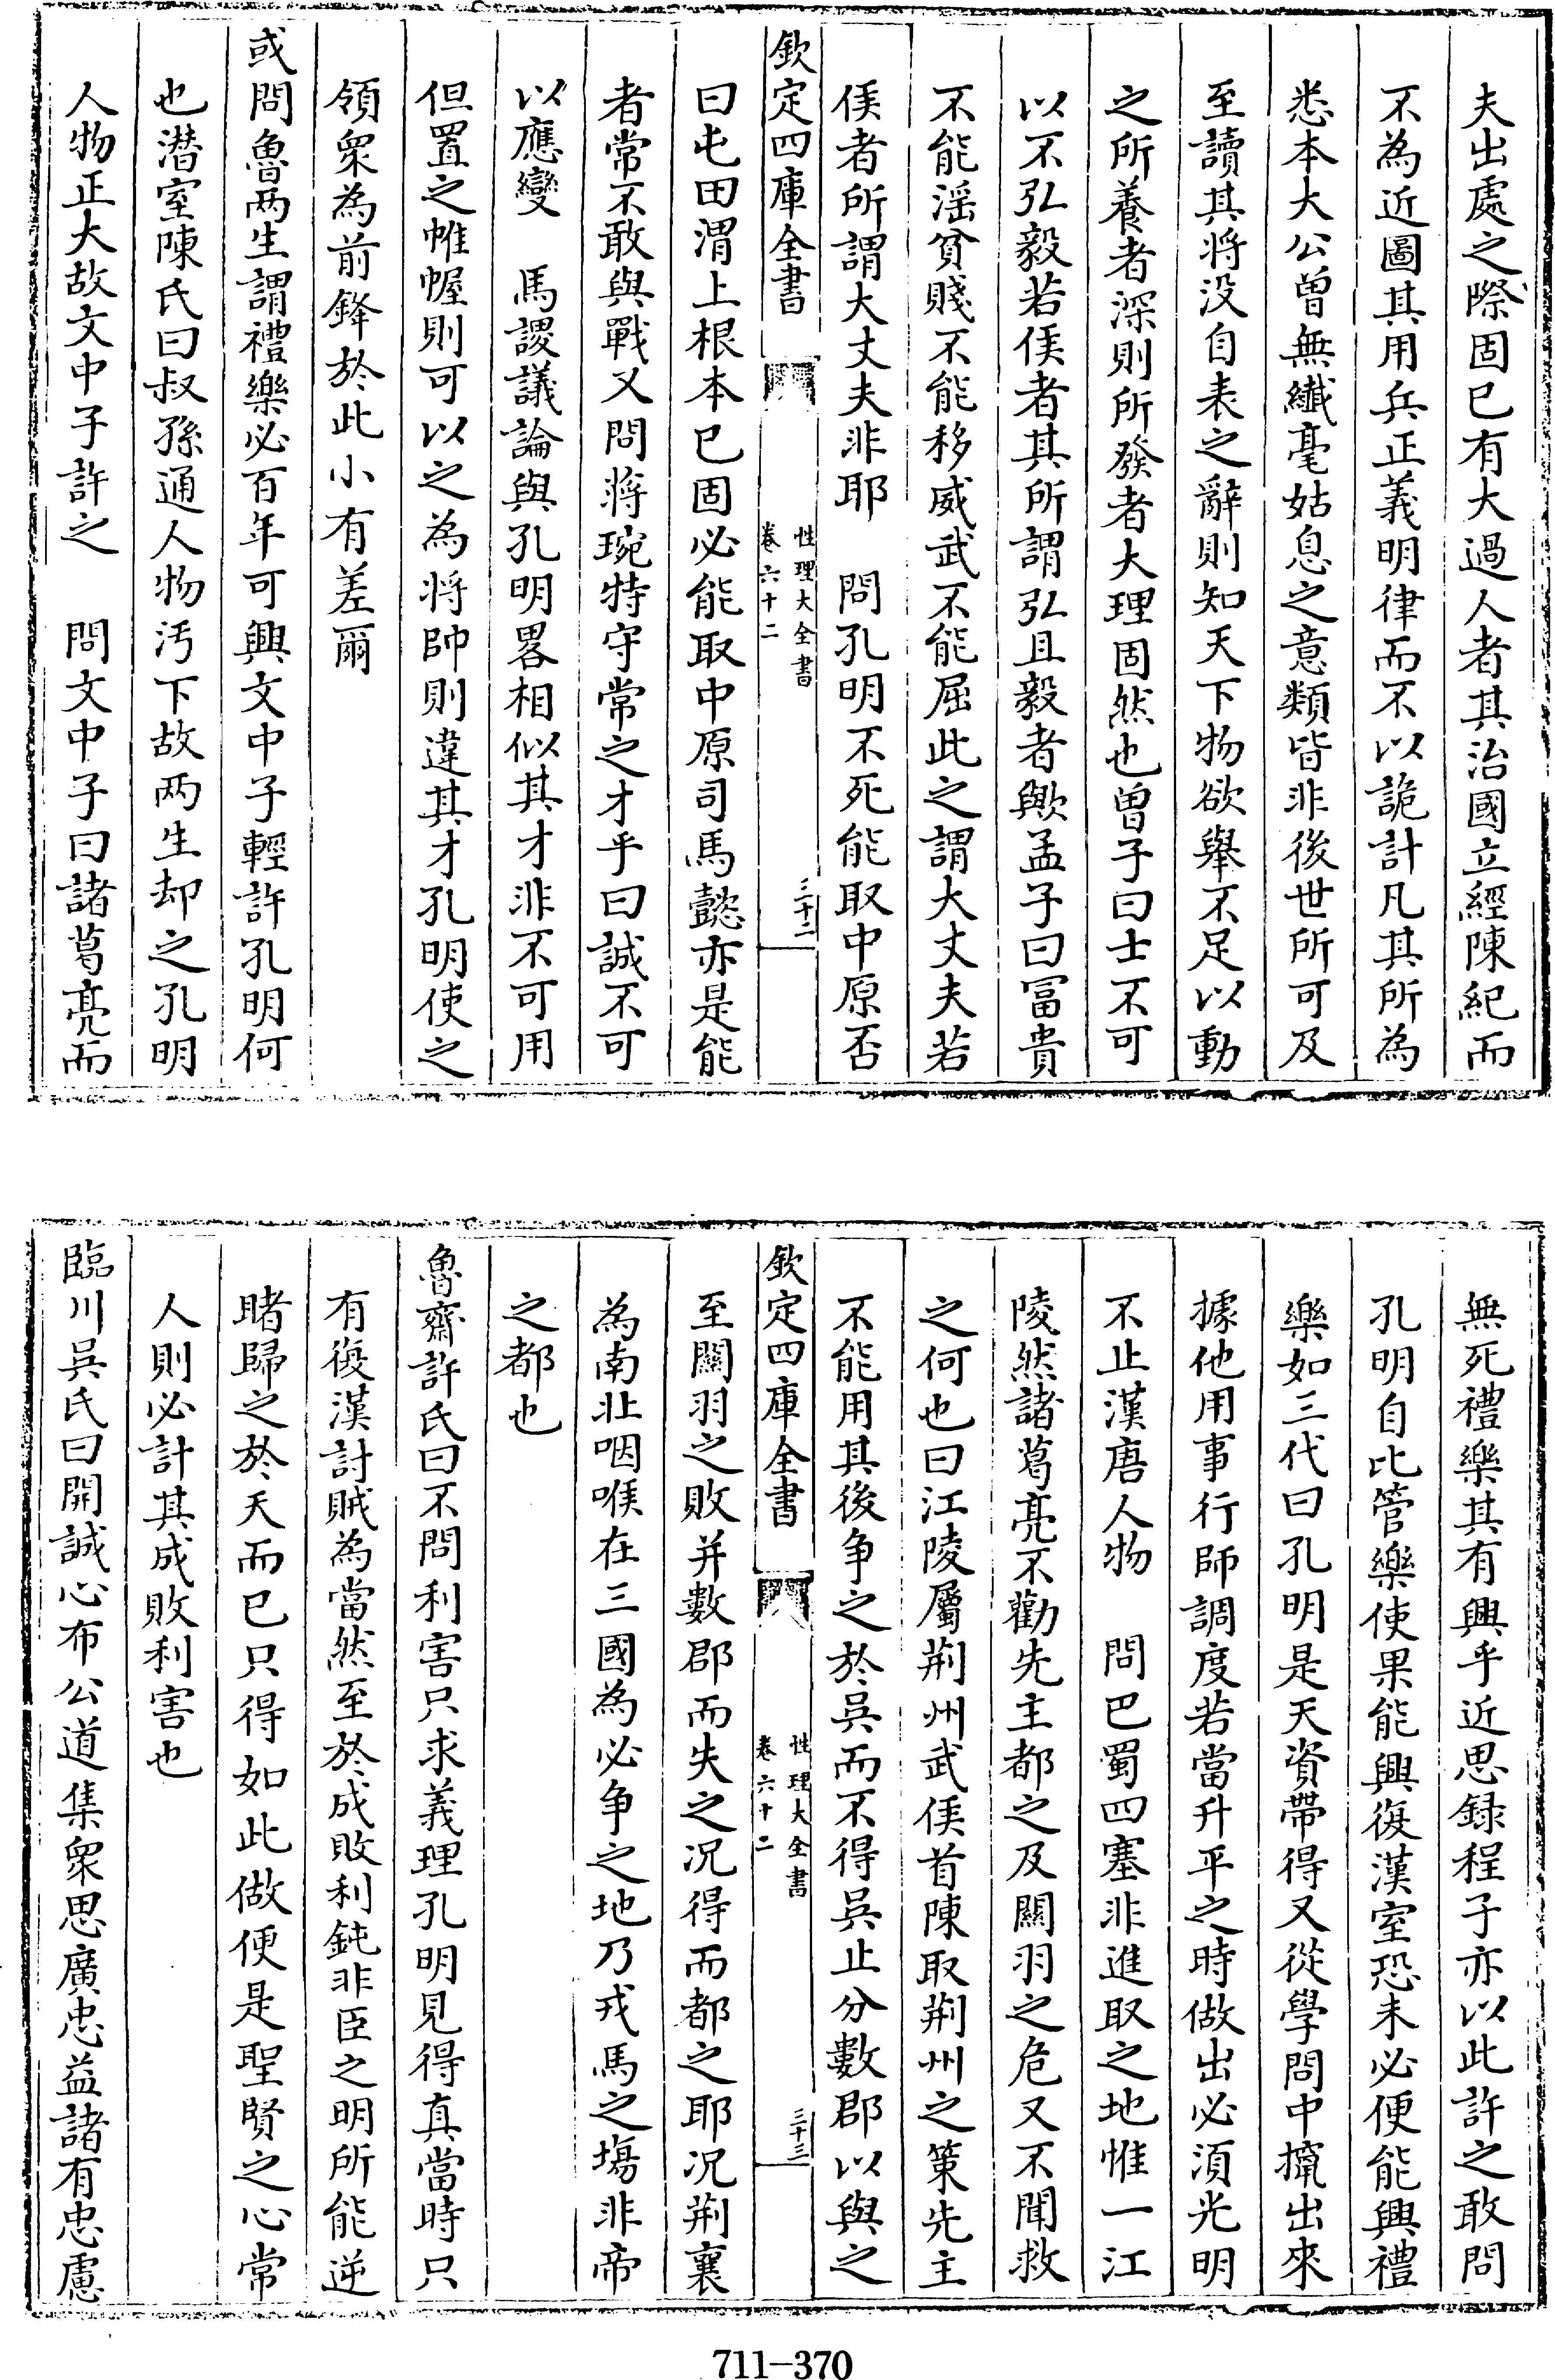 夫出處之際固已有大過人者其治國立經陳紀而
不為近圖其用兵正義明律而不以詭計凡其所為
悉本大公曾無纖毫姑息之意類皆非後世所可及
至讀其将没自表之辭則知天下物欲舉不足以動
之所養者深則所發者大理固然也曾子曰士不可
以不弘毅若侯者其所謂弘且毅者歟孟子曰冨貴
不能滛貧賤不能移威武不能屈此之謂大丈夫若
侯者所謂大丈夫非耶　問孔明不死能取中原否
欽定四庫全書
性理大全書
卷六十二
三十二
曰屯田渭上根本已固必能取中原司馬懿亦是能
者常不敢與戰又問蔣琬特守常之才乎曰誠不可
以應變　馬謖議論與孔明畧相似其才非不可用
但置之帷幄則可以之為将帥則違其才孔明使之
領衆為前鋒於此小有差爾
或問魯两生謂禮樂必百年可興文中子輕許孔明何
也潜室陳氏曰叔孫通人物汚下故两生却之孔明
人物正大故文中子許之　問文中子曰諸葛亮而
無死禮樂其有興乎近思録程子亦以此許之敢問
孔明自比管樂使果能興復漢室恐未必便能興禮
樂如三代曰孔明是天資帶得又從學問中攛出來
據他用事行師調度若當升平之時做出必須光明
不止漢唐人物　問巴蜀四塞非進取之地惟一江
陵然諸葛亮不勸先主都之及關羽之危又不聞救
之何也曰江陵屬荆州武侯首陳取荆州之策先主
不能用其後争之於吳而不得吳止分數郡以與之
欽定四庫全書
性理大全書
卷六十二
三十三
至關羽之敗并數郡而失之况得而都之耶况荆襄
為南北咽喉在三國為必争之地乃戎馬之塲非帝
之都也
魯齋許氏曰不問利害只求義理孔明見得真當時只
有復漢討賊為當然至於成敗利鈍非臣之明所能逆
睹歸之於天而已只得如此做便是聖賢之心常
人則必計其成敗利害也
臨川吳氏曰開誠心布公道集衆思廣忠益諸有忠慮
711—370